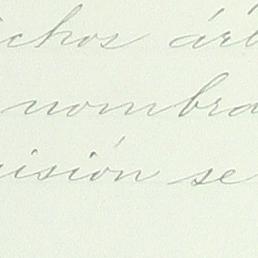 ichos árb
nombra
cisión se